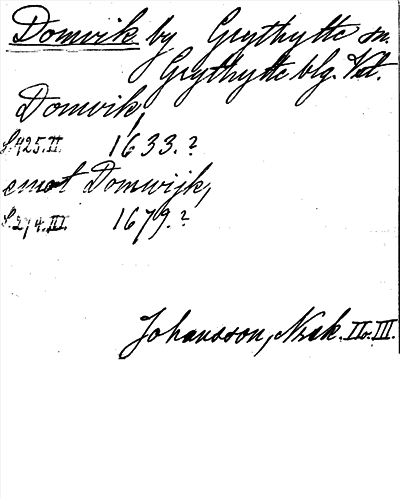 Domvik by Grythytte sn.
Grythytte blg. Vstl.
Domvik,
S. 425. II. 1633. ?
emot Domwijk,
S. 274. III. 1679. ?
Johansson, Nrsk. II-III.